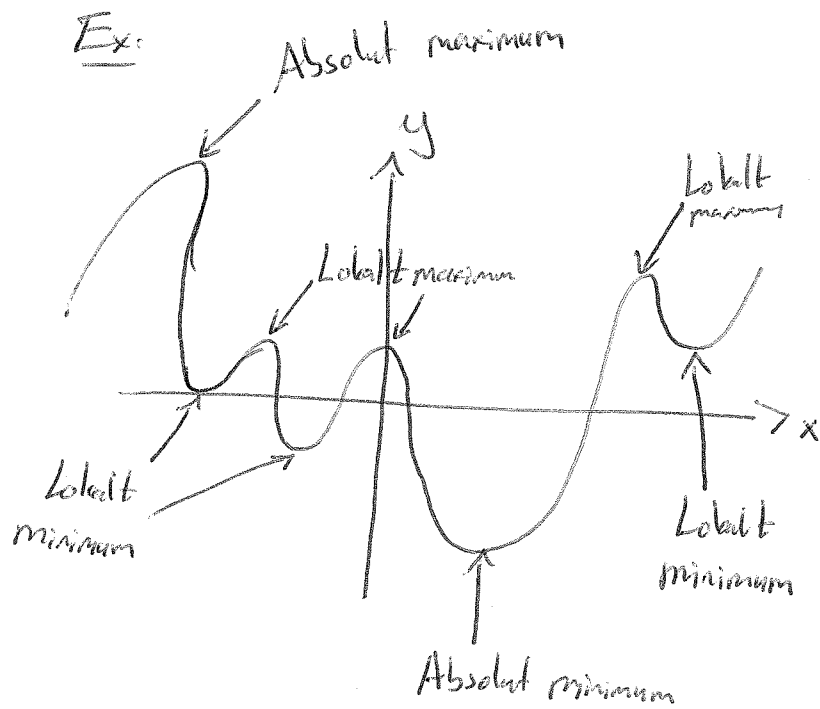 Ex:
Absolut maximum
y
Lokalt
maximum
Lokalt maximum
x
Lokalt
minimum
Lokalt
minimum
Absolut minimum